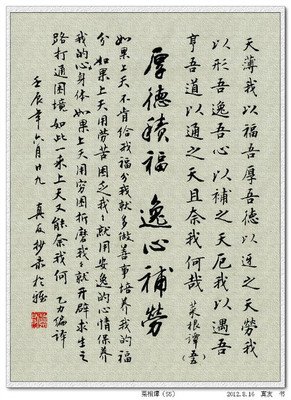 天薄我以福吾厚吾德以迓之天勞我
以形吾逸吾心以補之天厄我以遇吾
亨吾道以通之天且奈我何哉 菜根譚
厚德積福 逸心補勞
如果上天不肯給我福分我就多做善事培養我的福
分如果上天用勞苦困乏我我就用安逸的心情保養
我的心身体如果上天用窮困折磨我我就開辟求生之
路打通困境如此一来上天又能奈我何 乙力编
壬辰年六月廿九 真友抄录於
菜根譚 (55) 2012.8.16 真友 书